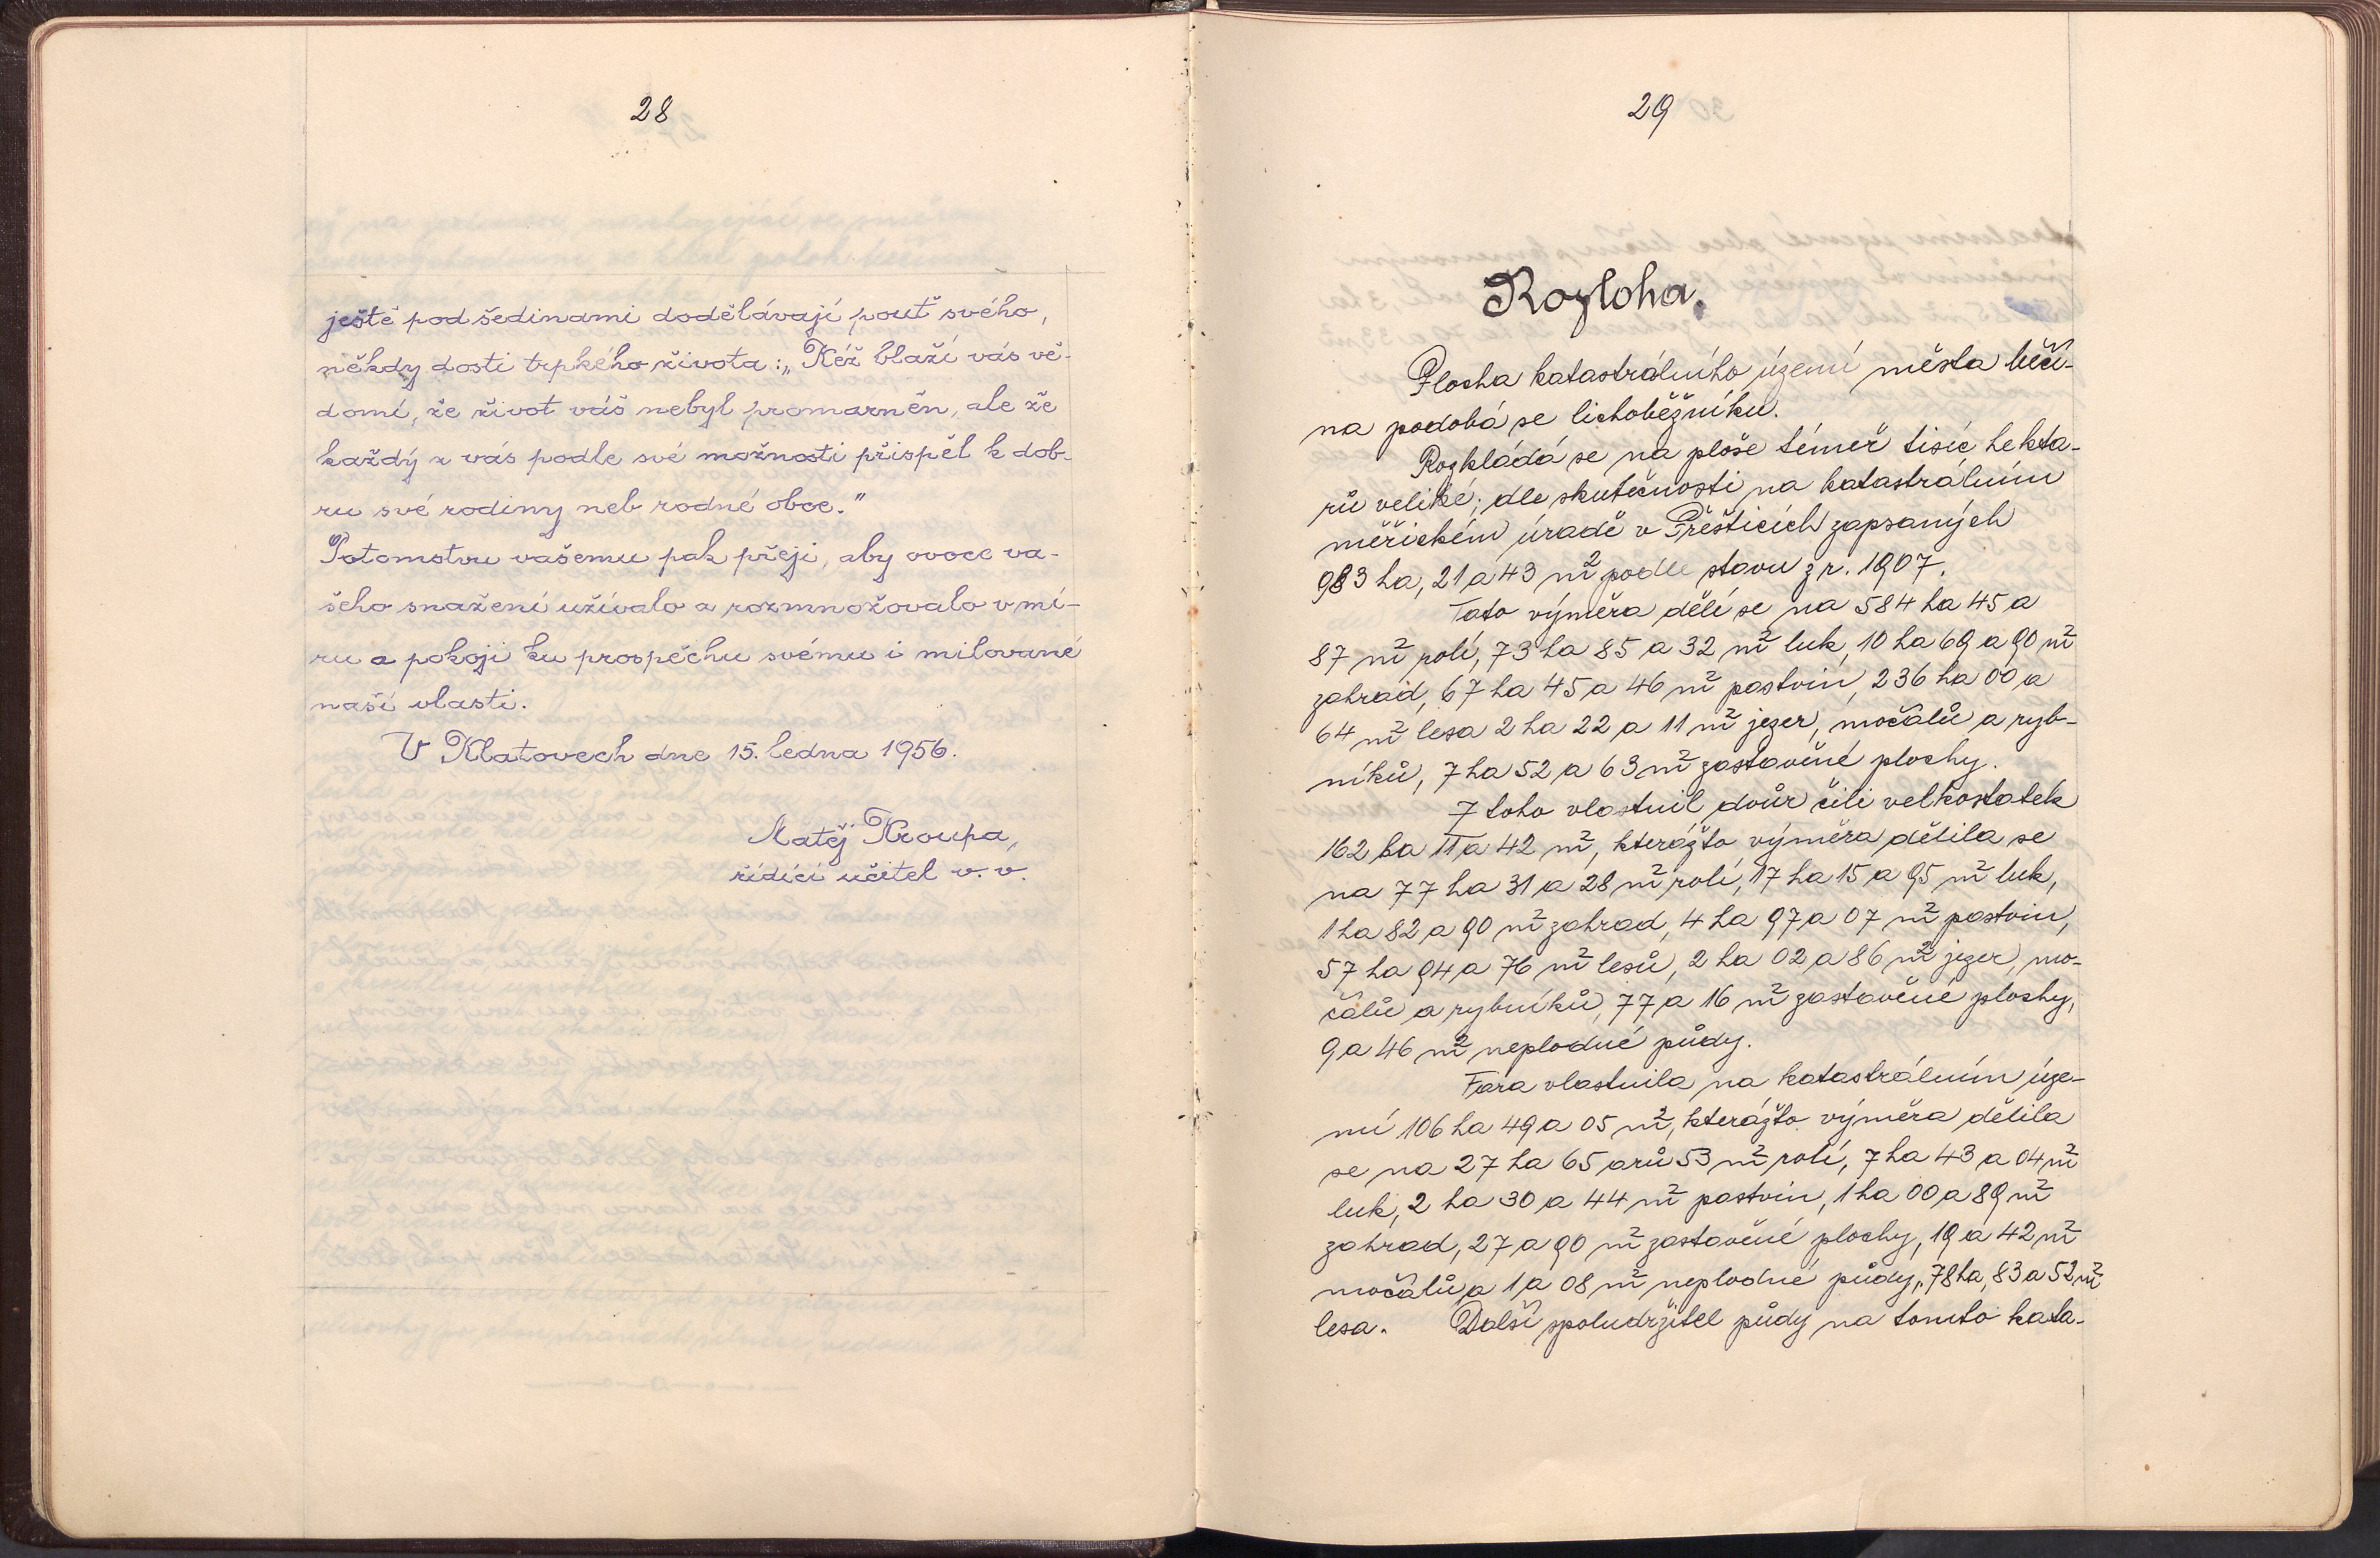 28
ještě pod šedinami dodělávají pouť svého,
někdy dosti trpkého života: „Kéž blaží vás vě-
domí, že život váš nebyl promarněn, ale že
každý z vás podle své možnosti přispěl k dob-
ru své rodiny neb rodné obce."
Potomstvu vašemu pak přeji, aby ovoce va-
šeho snažení užívalo a rozmnožovalo v mí-
ru a pokoji ku prospěchu svému i milované
naší vlasti.
V Klatovech dne 15. ledna 1956.
Matěj Kroupa,
řídící učitel v. v.
29
Rozloha.
Plocha katastrálního území města Měčí-
na podobá se lichoběžníku.
Rozkládá se na ploše téměř tisíc hekta-
rů veliké; dle skutečnosti na katastrálním
měřickém úradě v Přešticích zapsaných
983 ha, 21 a 43 m² podle stavu z r. 1907.
Tato výměra dělí se na 584 ha 45 a
87 m² rolí, 73 ha 85 a 32 m² luk, 10 ha 69 a 90 m²
zahrad, 67 ha 45 a 46 m² pastvin, 236 ha 00 a
64 m² lesa 2 ha 22 a 11 m² jezer, močálů a ryb-
níků, 7 ha 52 a 63 m² zastavěné plochy.
Z toho vlastnil dvůr čili velkostatek
162 ha 11 a 42 m², kterážto výměra dělila se
na 77 ha 31 a 28 m² rolí, 17 ha 15 a 95 m² luk,
1 ha 82 a 90 m² zahrad, 4 ha 97 a 07 m² pastvin,
57 ha 94 a 76 m² lesů, 2 ha 02 a 86 m² jezer, mo-
čálů a rybníků, 77 a 16 m² zastavěné plochy,
9 a 46 m² neplodné půdy.
Fara vlastnila na katastrálním úze-
mí 106 ha 49 a 05 m², kterážto výměra dělila
se na 27 ha 65 arů 53 m² rolí, 7 ha 43 a 04 m²
luk, 2 ha 30 a 44 m² pastvin, 1 ha 00 a 89 m²
zahrad, 27 a 90 m² zastavěné plochy, 19 a 42 m²
močálů a 1 a 08 m² neplodné půdy, 78 ha, 83 a 52 m²
lesa. Další spoludržitel půdy na tomto kata-